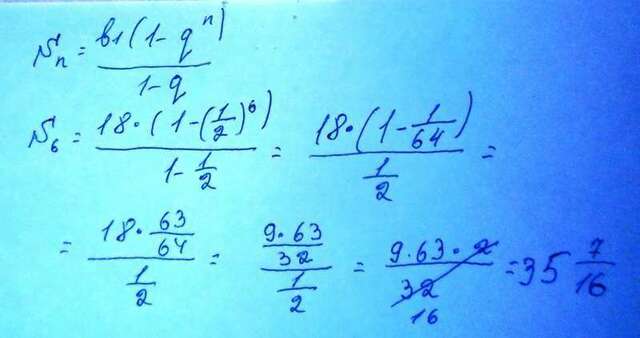 Sₙ = b₁(1-qⁿ) / 1-q
S₆ = 18·(1-(1/2)⁶) / 1-1/2 = 18·(1-1/64) / 1/2 =
= 18·63/64 / 1/2 = 9·63/32 / 1/2 = 9·63·2 / 32 16 = 35 7/16